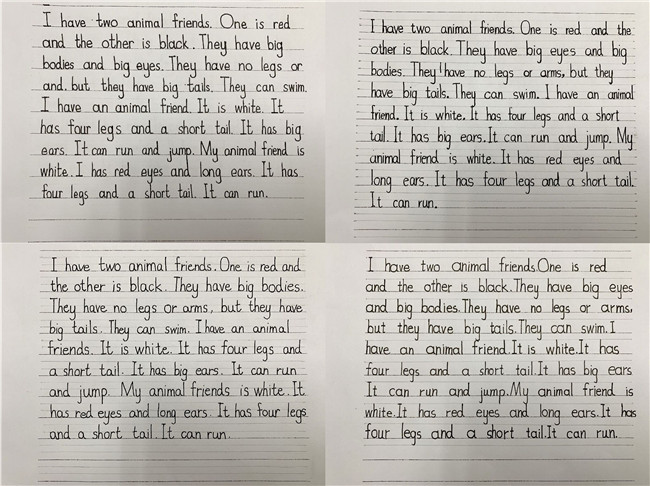 I have two animal friends. One is red
and the other is black. They have big
bodies and big eyes. They have no legs or
and. but they have big tails. They can swim.
I have an animal friend. It is white. It
has four legs and a short tail. It has big
ears. It can run and jump. My animal friend is
white. I has red eyes and long ears. It has
four legs and a short tail. It can run.
I have two animal friends. One is red and the
other is black. They have big eyes and big
bodies. They have no legs or arms, but they
have big tails. They can swim. I have an animal
friend. It is white. It has four legs and a short
tail. It has big ears. It can run and jump. My
animal friend is white. It has red eyes and
long ears. It has four legs and a short tail.
It can run.
I have two animal friends. One is red and
the other is black. They have big bodies.
They have no legs or arms, but they have
big tails. They can swim. I have an animal
friends. It is white. It has four legs and
a short tail. It has big ears. It can run
and jump. My animal friends is white. It
has red eyes and long ears. It has four legs
and a short tail. It can run.
I have two animal friends.One is red
and the other is black.They have big eyes
and big bodies.They have no legs or arms,
but they have big tails.They can swim.I
have an animal friend.It is white.It has
four legs and a short tail.It has big ears
It can run and jump.My animal friend is
white.It has red eyes and long ears.It has
four legs and a short tail.It can run.